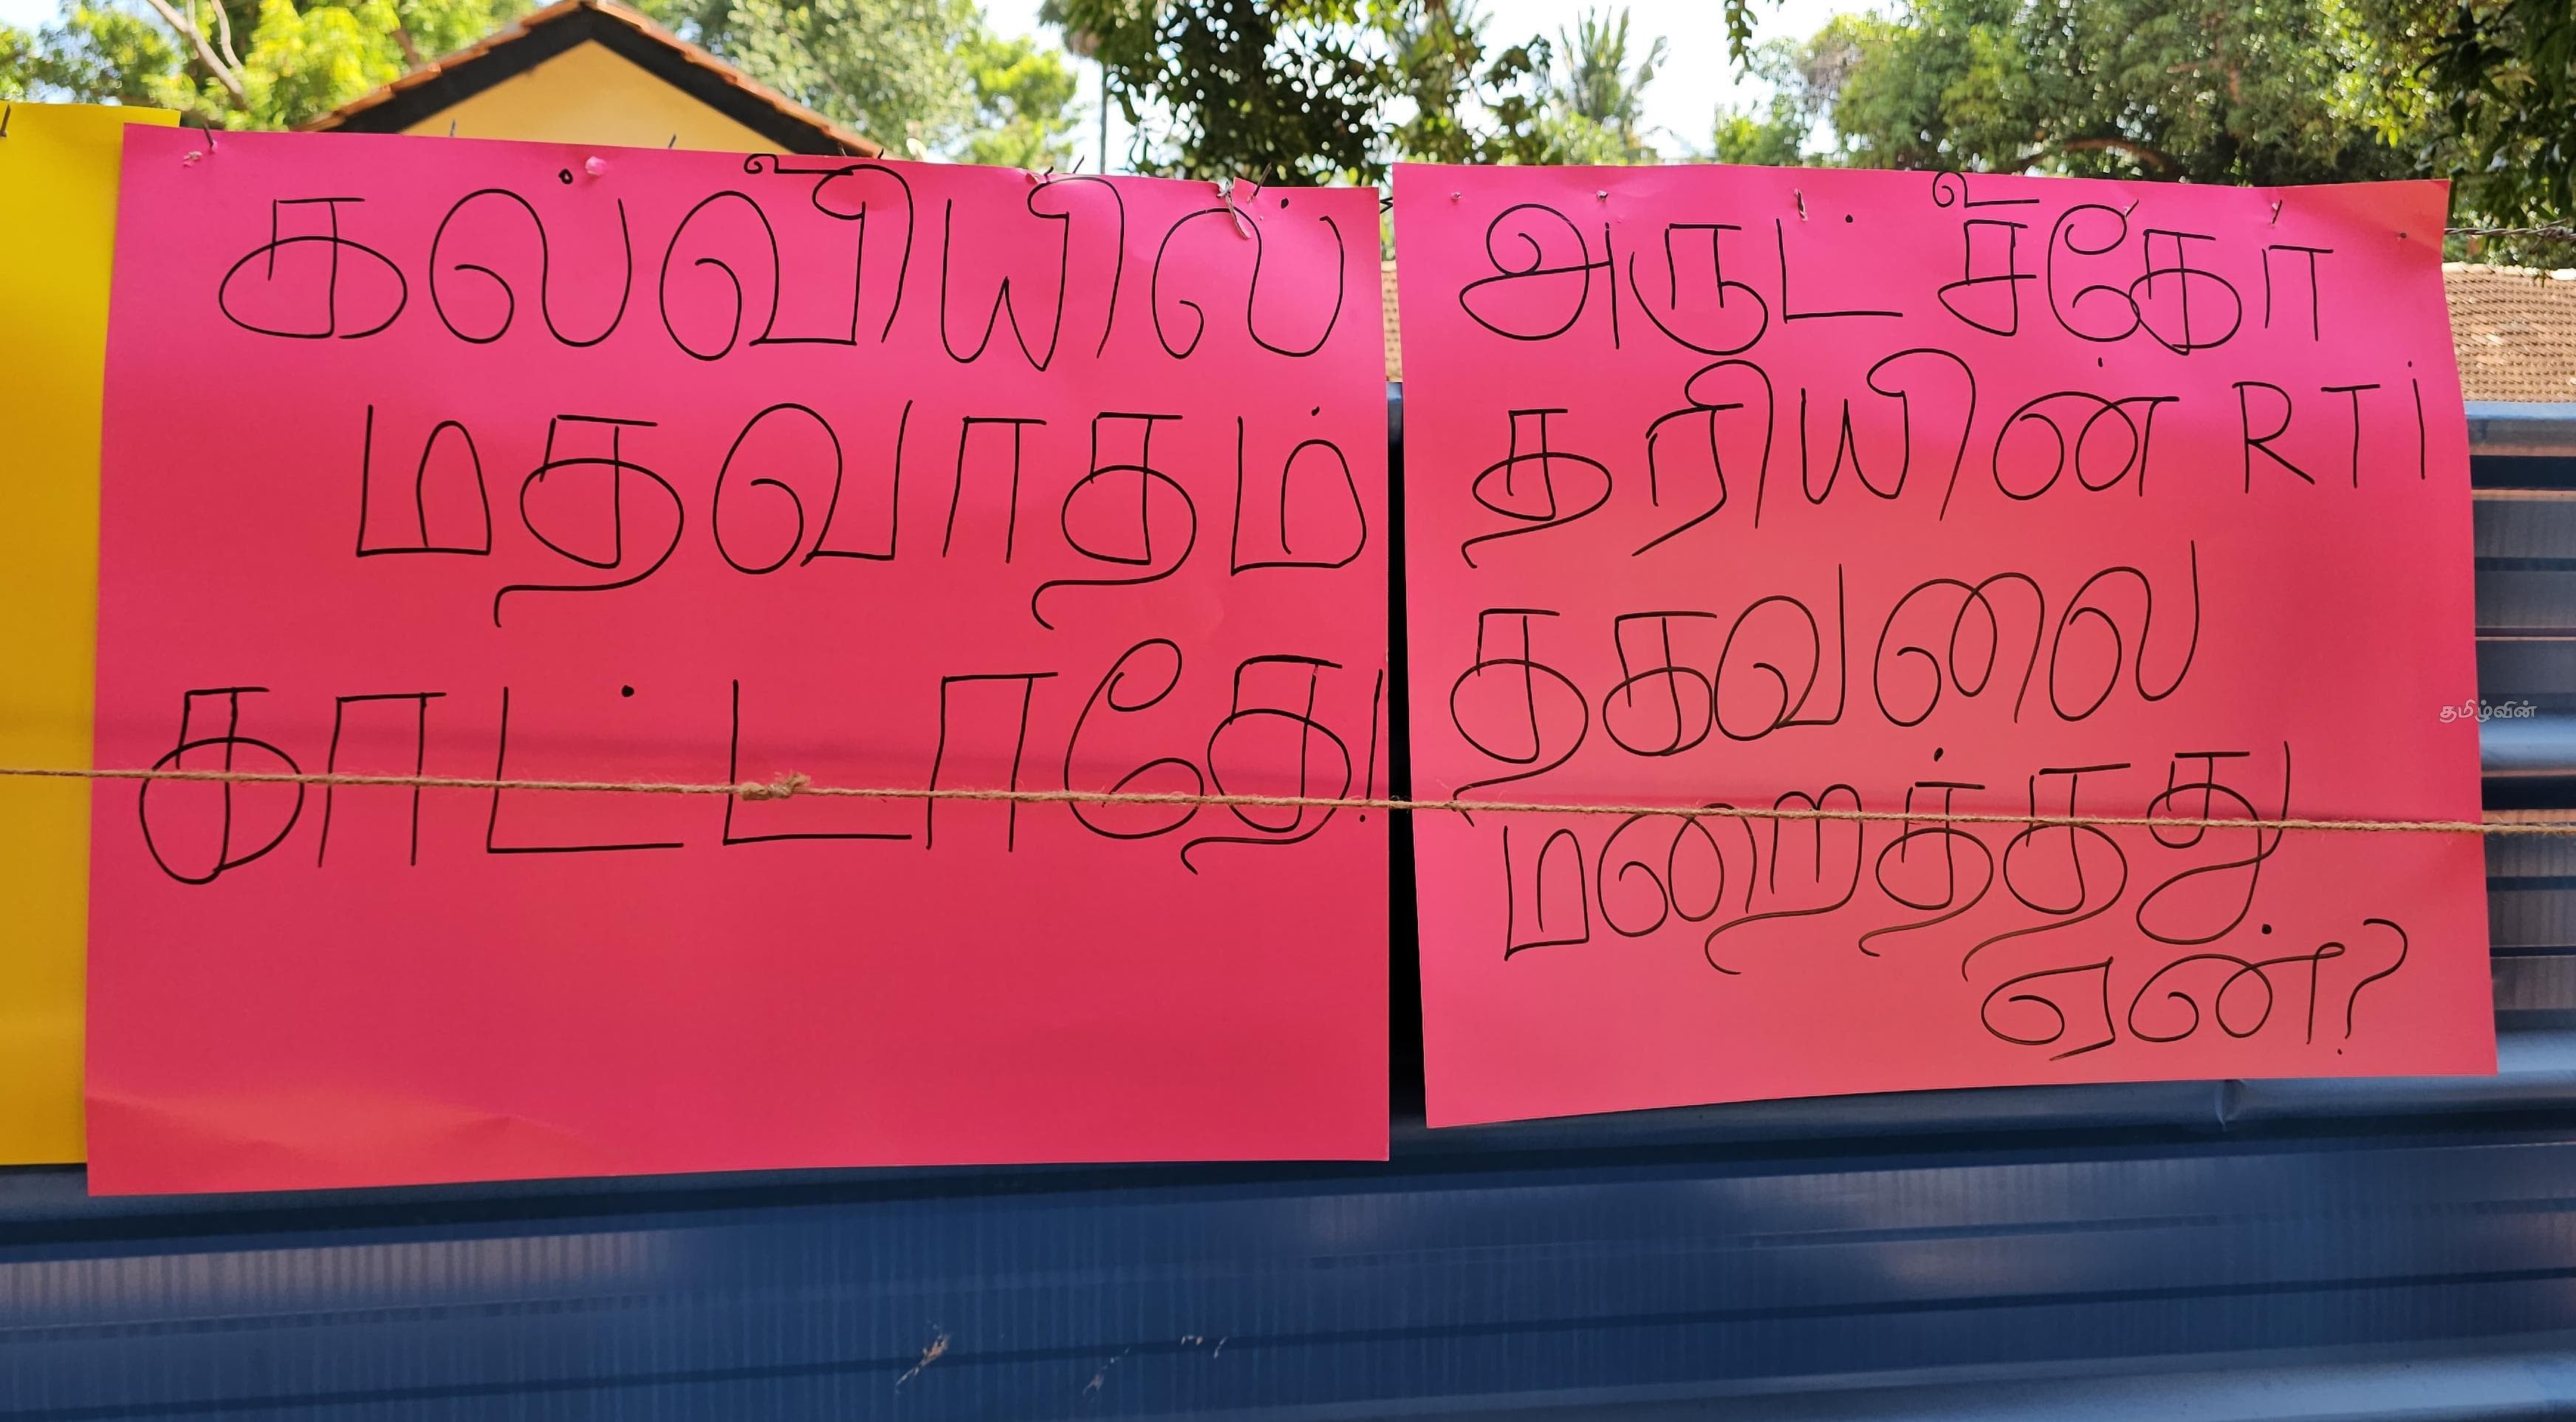 கல்வியில்
மதவாதம்
காட்டாதே!
அருட் சகோ
தரியின் RTi
தகவலை
மறைத்தது
ஏன்?
தமிழ்வின்